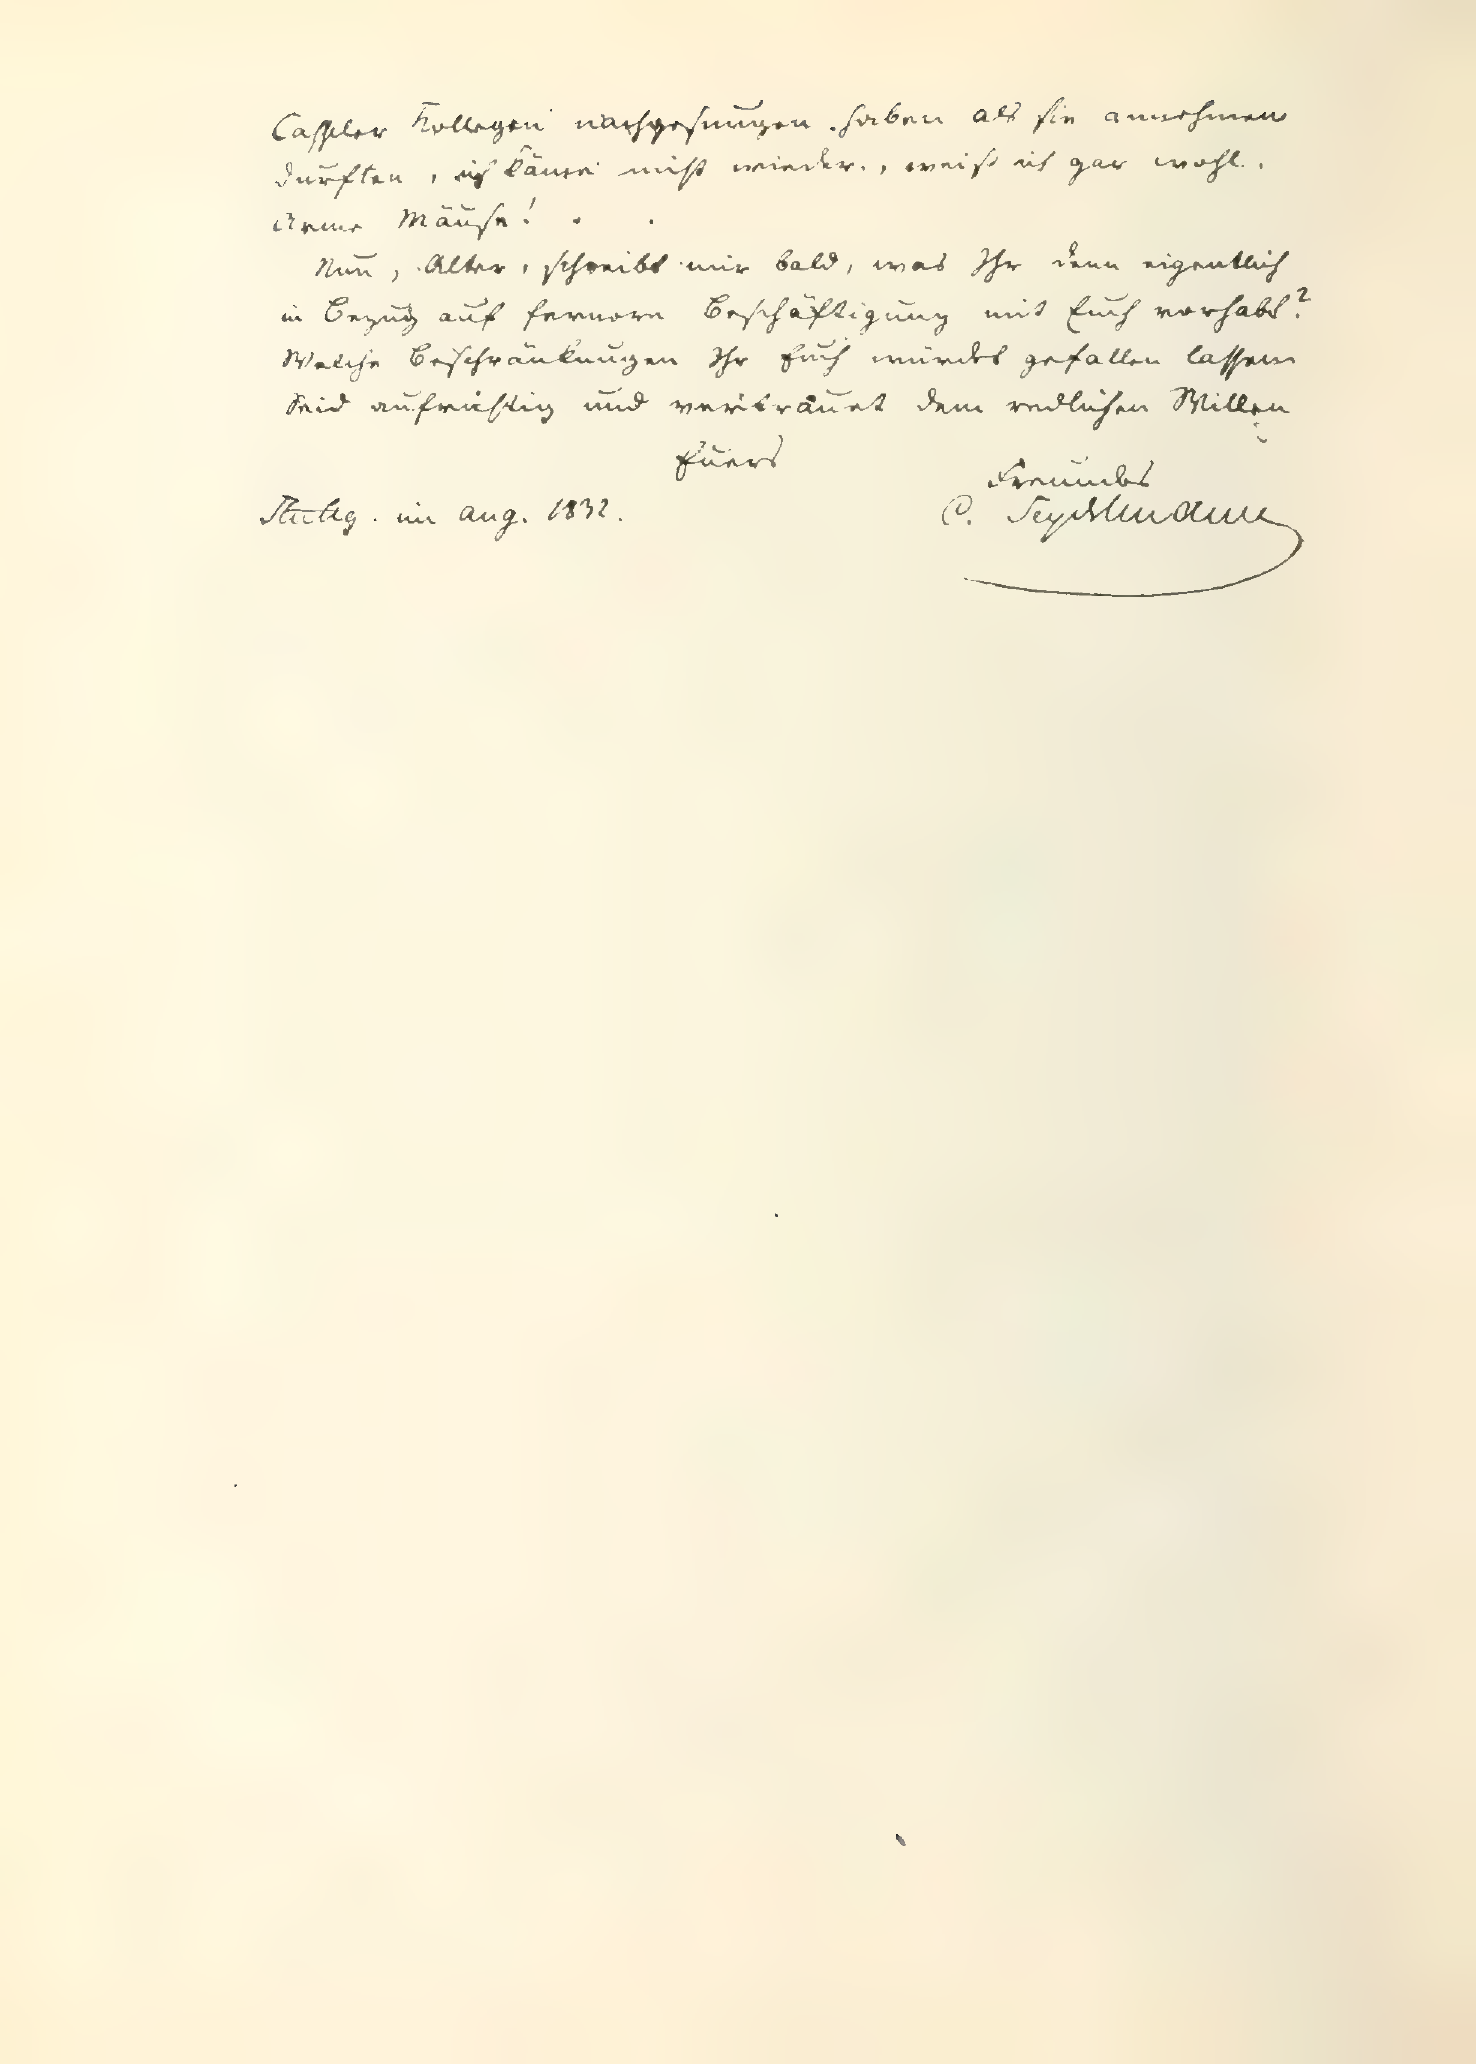 Caßler Kollegen nachgesungen haben als sie annehmen
durften, ich käme nicht wieder, weiß ich gar wohl.
Arme Mäuse!
Nun, Alter, schreibt mir bald, was Ihr denn eigentlich
in Bezug auf fernere Beschäftigung mit Euch vorhabt?
Welche Beschränkungen Ihr Euch würdet gefallen lassen
Seid aufrichtig und vertrauet dem redlichen Willen
Euers
Freundes
Stuttg. im Aug. 1832.
C. Seydelmann